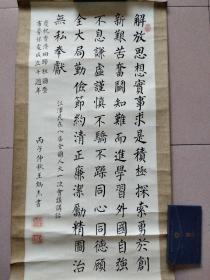 解放思想實事求是積極探索勇於創
新艱苦奮鬪知難而進學習外國自強
不息謙虛謹慎不驕不躁同心同德顧
全大局勤儉節約清正廉潔勵精圖治
無私奉獻
江澤民在八届全國人大一次會議講話
慶祝香港回歸祖國暨
丙子仲秋王鶴亮書